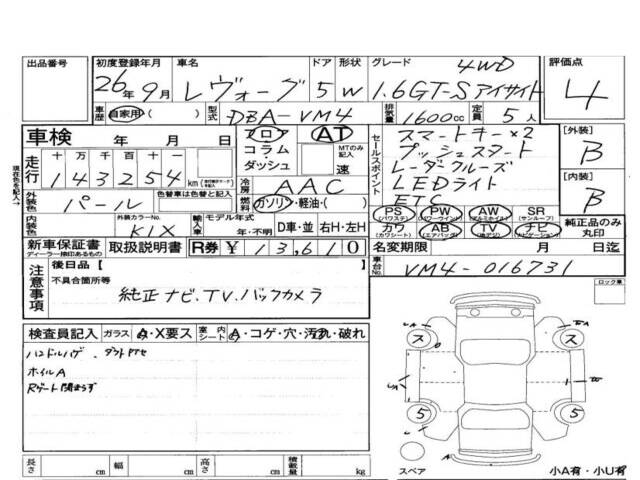 出品番号 初度登録年月 車名 ドア 形状 グレード 4WD 評価点
26年 9月 レヴォーグ 5 W 1.6GT-Sアイサイト 4
車歴 自家用( ) 型式 DBA-VM4 排気量 1600cc 定員 5人
車検 年 月 日 フロア AT セールスポイント スマートキー×2 [外装]
コラム MTのみ記入 プッシュスタート B
走行 十 万 千 百 十 一 ダッシュ 速 レーダークルーズ
143254km 冷房 AAC LEDライト [内装]
外装色 パール 色替車は色替と記入 燃料 ガソリン・軽油・( ) ETC B
PS PW AW SR
(パワステ) (パワーウインド) (アルミホイル) (サンルーフ)
内装色 外装カラーNo. K1X 輸入車 モデル年式 年・不明 D車・並 右H・左H カワ AB TV ナビ 純正品のみ丸印
(カワシート) (エアバッグ) (地デジ) (ナビゲーション)
新車保証書 取扱説明書 R券 ¥13,610 名変期限 月 日迄
ディーラー捺印あるもの
現在色を記入
注意事項 後日品【 】 車台No. VM4-016731
不具合箇所等
純正ナビ.TV.バックカメラ
ロック車
検査員記入 ガラス A・X要ス 室内シート A・コゲ・穴・汚れ・破れ
ホイルA
ス ス
5 5
長さ cm 幅 cm 高さ cm 積載量 kg
スペア 小A有・小U有